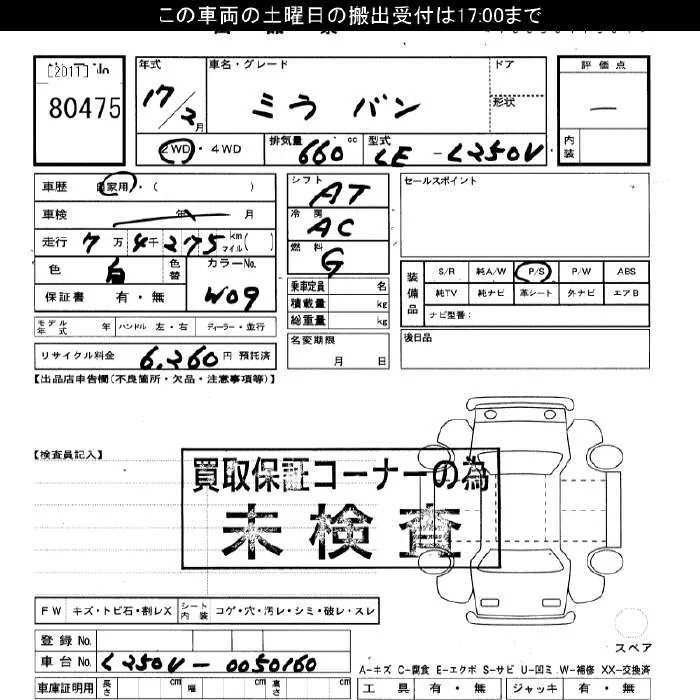 この車両の土曜日の搬出受付は17:00まで
[2017] No
80475
年式 17/2月
車名・グレード ミラ バン
ドア
形状
評価点 —
内装
2WD・4WD
排気量 660 cc
型式 LE-L250V
車歴 自家用・( )
車検 年 月
走行 7万4千275 km マイル( )
色 白 色替
カラーNo. W09
保証書 有・無
モデル年式 年
ハンドル 左・右
ディーラー・並行
リサイクル料金 6,260円 預託済
シフト AT
冷房 AC
燃料 G
乗車定員 名
積載量 kg
総重量 kg
名変期限 月 日
セールスポイント
装備品
S/R 純A/W P/S P/W ABS
純TV 純ナビ 革シート 外ナビ エアB
ナビ型番:
後日品
【出品店申告欄(不良箇所・欠品・注意事項等)】
【検査員記入】
買取保証コーナーの為
未検査
FW キズ・トビ石・割レX
シート内装 コゲ・穴・汚レ・シミ・破レ・スレ
スペア
登録No.
車台No. L250V-0050160
A-キズ C-腐食 E-エクボ S-サビ U-凹ミ W-補修 XX-交換済
車庫証明用 長さ cm 幅 cm 高さ cm
工具 有・無 ジャッキ 有・無